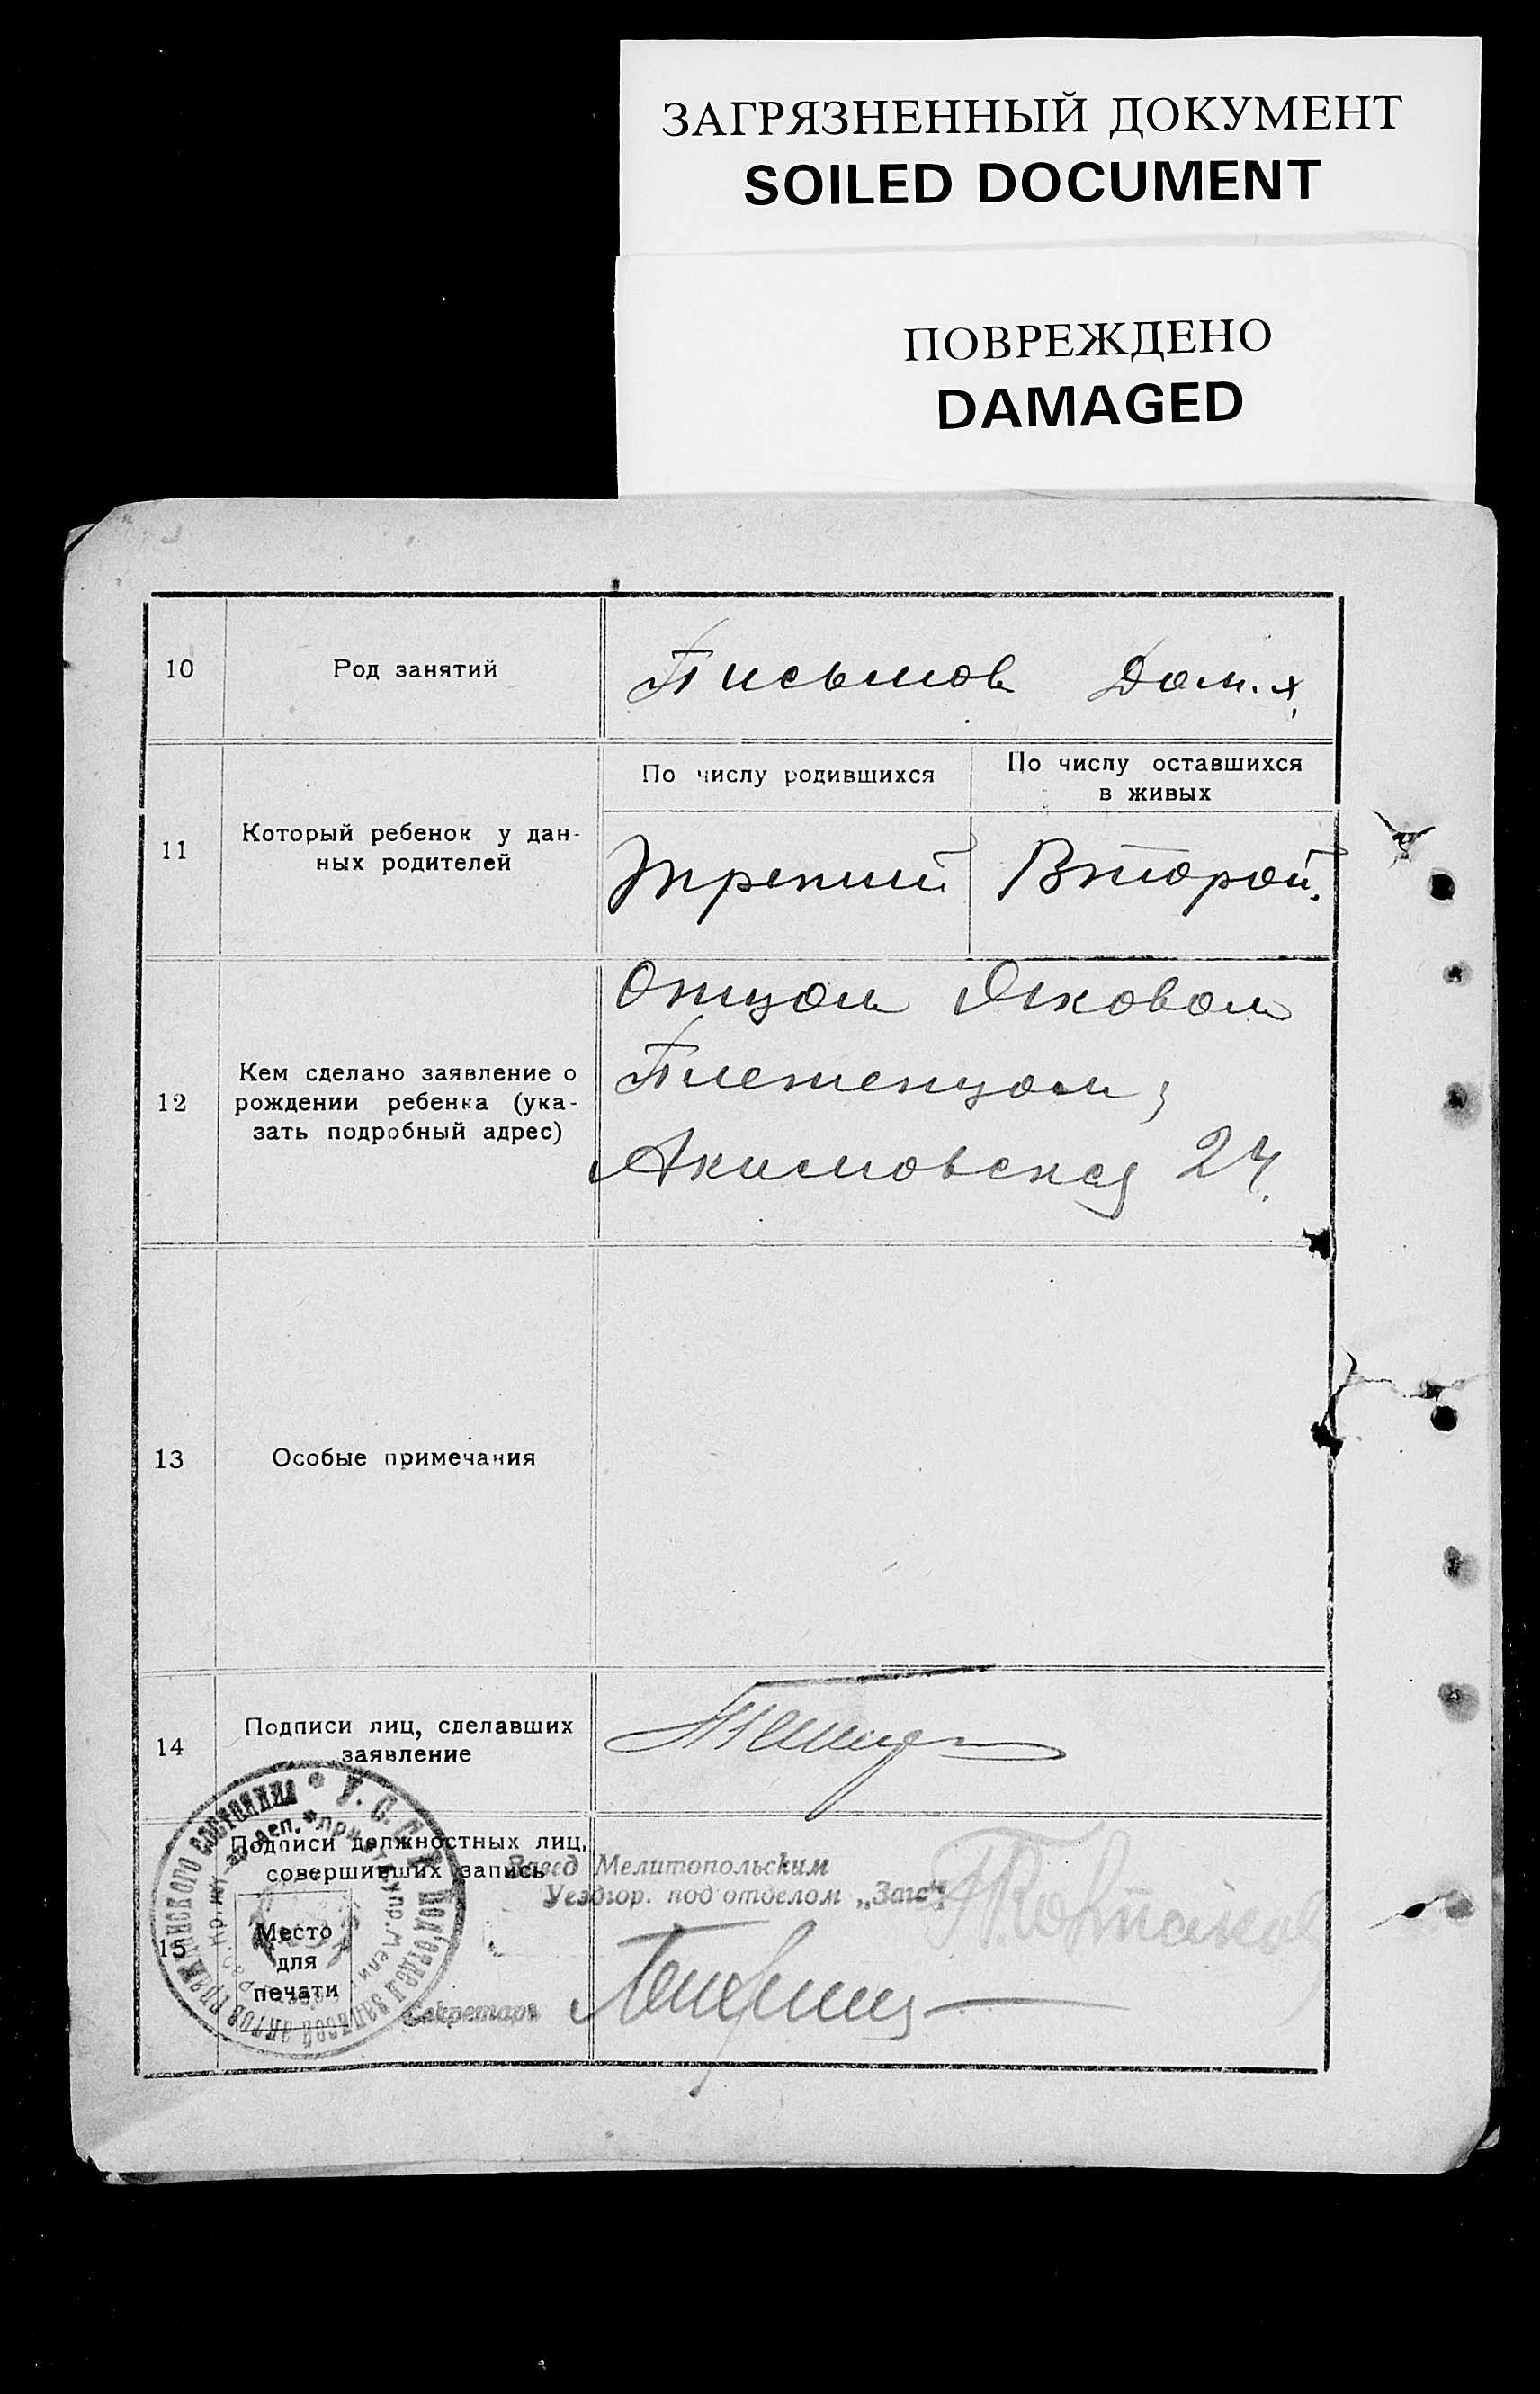 ЗАГРЯЗНЕННЫЙ ДОКУМЕНТ
SOILED DOCUMENT
ПОВРЕЖДЕНО
DAMAGED
10
Род занятий
Письмов Дом. х.
11
Который ребенок у дан-
ных родителей
По числу родившихся
По числу оставшихся
в живых
Третий
Второй.
12
Кем сделано заявление о
рождении ребенка (ука-
зать подробный адрес)
Отцом Яковом
Акимовская 24.
13
Особые примечания
14
Подписи лиц, сделавших
заявление
15
Подписи должностных лиц,
совершивших запись
Место
для
печати
Завед Мелитопольским
Уездгор. под'отделом „Загс"
Секретарь